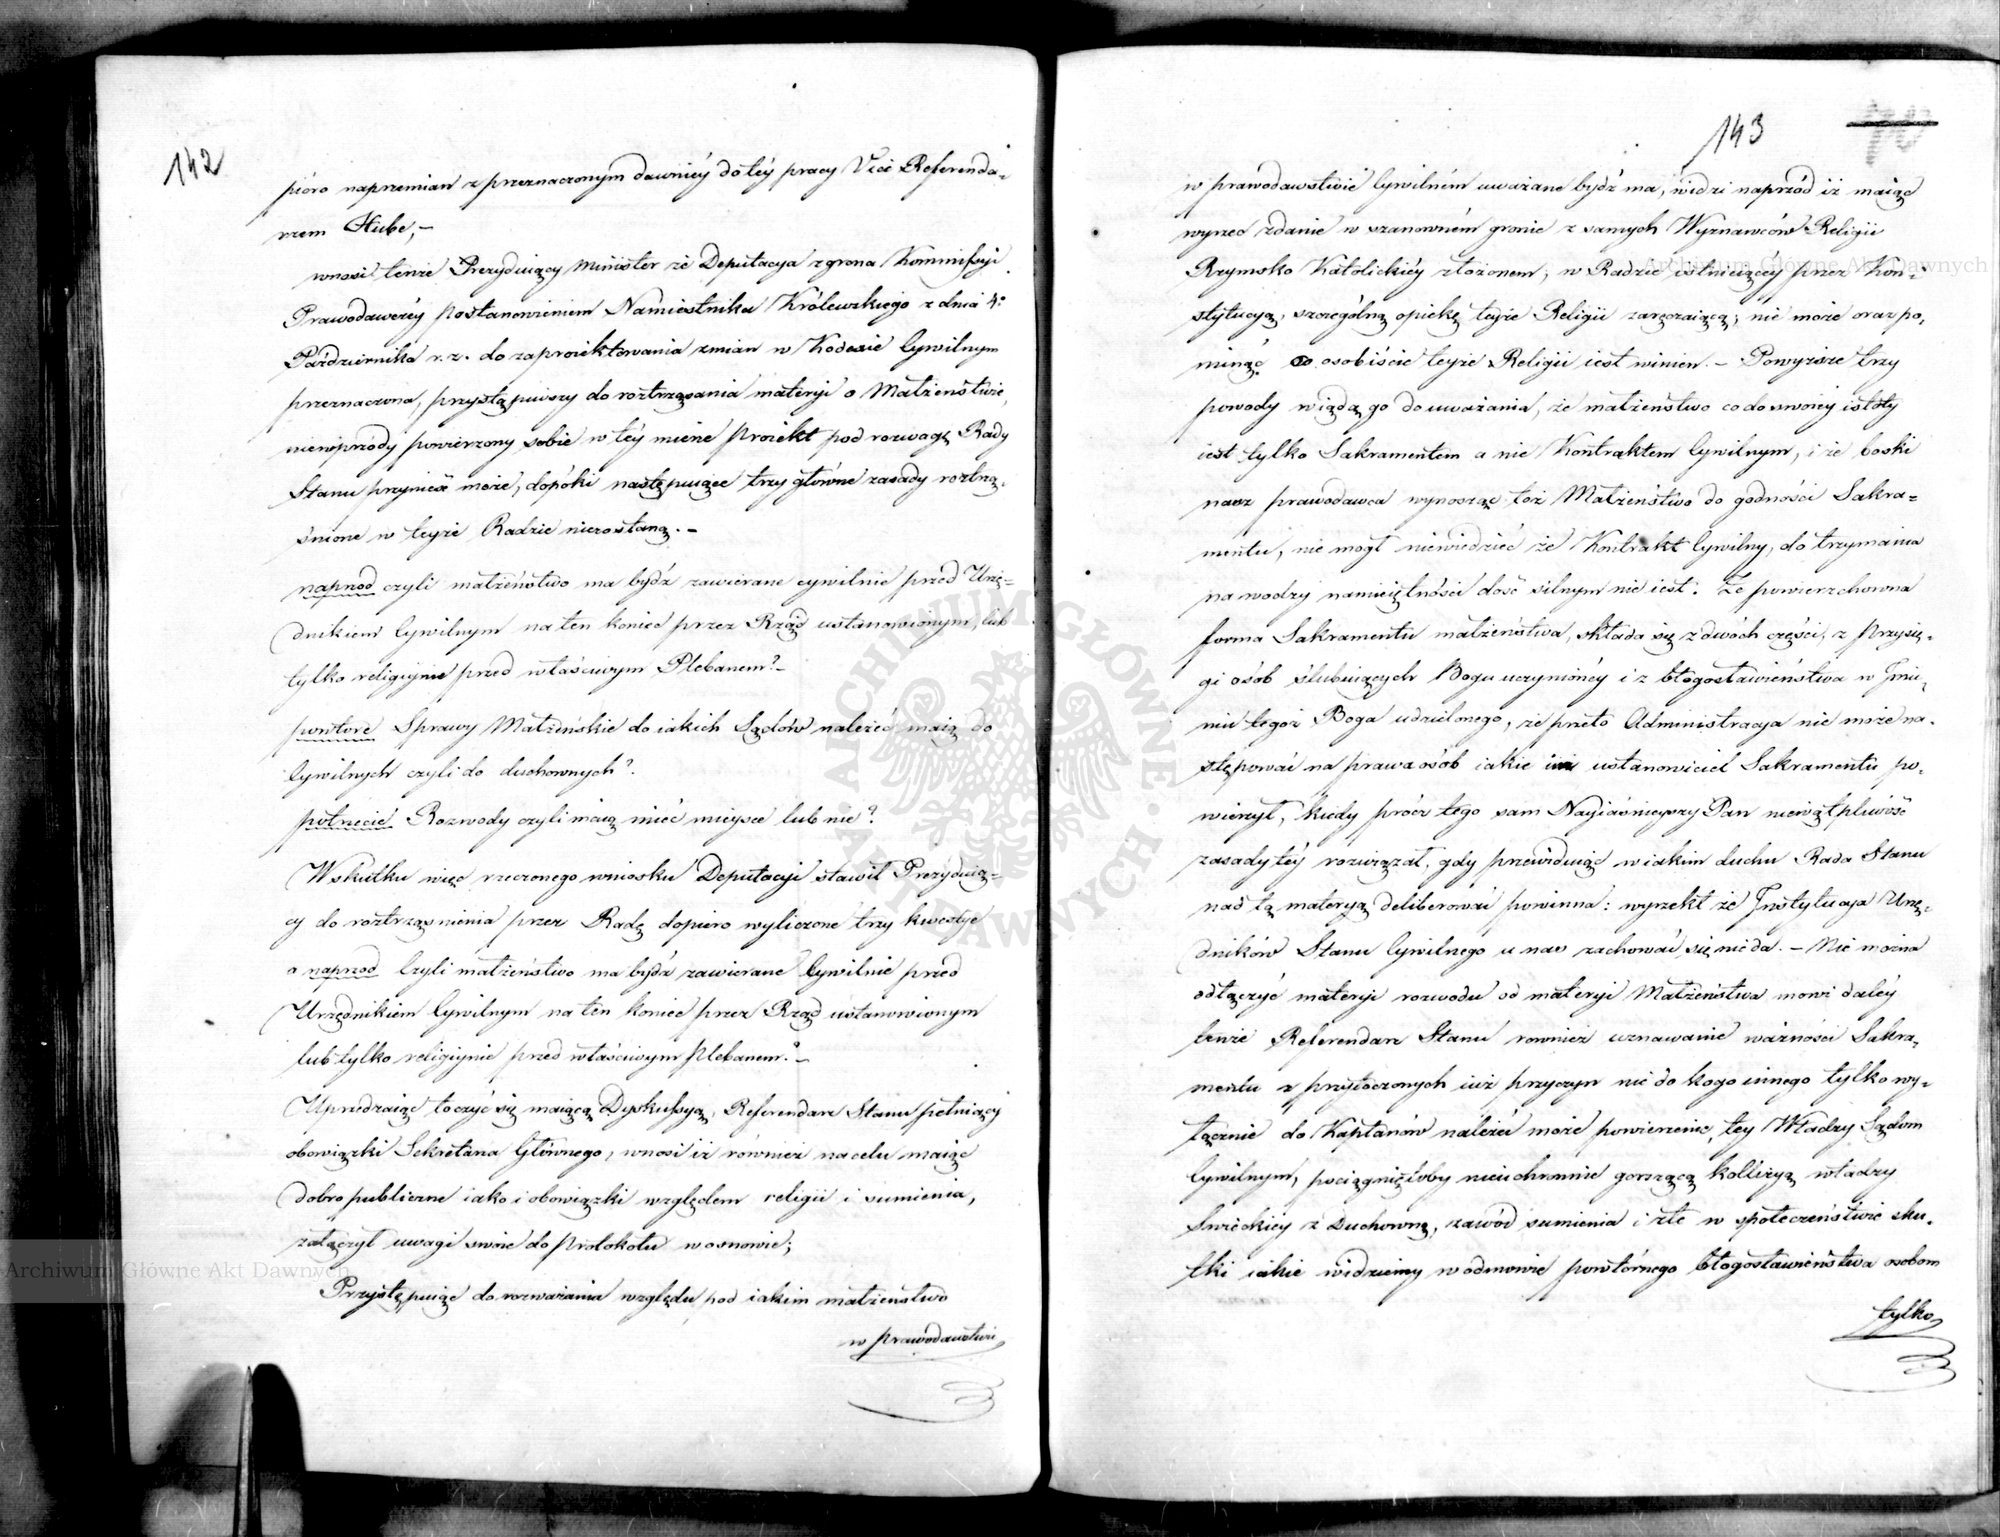 142
pióro naprzemian z przeznaczonym dawniéy do téy pracy Vice Referenda-
rzem Hube,-
wnosi tenże Prezyduiący Minister że Deputacya z grona Kommissyi
Prawodawczéy postanowieniem Namiestnika Królewskiego z dnia 4º
Października r.z. do zaproiektowania zmian w Kodexie Cywilnym
przeznaczona, przystąpiwszy do roztrząsania materyi o Małżeństwie,
nieprzódy powierzony sobie w téy mierze proiekt pod rozwagę Rady
Stanu przynieść może, dopóki następuiące trzy główne zasady roztrzą-
śnione w teyże Radzie niezostaną.-
naprzod czyli małżeństwo ma bydź zawierane cywilnie przed Urzę-
dnikiem Cywilnym na ten koniec przez Rząd ustanowionym, lub
tylko religiynie przed właściwym Plebanem?-
powtore Sprawy Małżeńskie do iakich Sądów należeć maią do
Cywilnych czyli do duchownych?
potrzecie Rozwody czyli maią mieć mieysce lub nie?
W skutku więc rzeczonego wniosku Deputacyi stawił Prezyduią-
cy do roztrząśnienia przez Radę dopiero wyliczone trzy kwestye
a naprzod Czyli małżeństwo ma bydź zawierane Cywilnie przed
Urzędnikiem Cywilnym na ten koniec przez Rząd ustanowionym
lub tylko religiynie przed właściwym Plebanem?-
Uprzedzaiąc toczyć się maiącą Dyskussyą, Referendarz Stanu pełniący
obowiązki Sekretarza Głównego, wnosi iż również na celu maiąc
dobro publiczne iako i obowiązki względem religii i sumienia,
załączył uwagi swoie do Protokołu w osnowie;
Przystępuiąc do rozważania względu pod iakim małżeństwo
w prawodawstwie
143
w prawodawstwie Cywilném uważane bydź ma, widzi naprzód iż maiąc
wyrzec zdanie w szanowném gronie z samych Wyznawców Religii
Rzymsko Katolickiéy złożonem; w Radzie istnieiącéy przez Kon-
stytucyą, szczególną opiekę teyże Religii zaręczaiącą; nie może oraz po-
minąć co osobiście teyże Religii iest winien.- Powyższe trzy
powody wiądą go do uważania, że małżeństwo co do swoiéy istoty
iest tylko Sakramentem a nie Kontraktem Cywilnym, i że boski
nasz prawodawca wynosząc toż Małżeństwo do godności Sakra-
mentu, nie mogł niewiedzieć że Kontrakt Cywilny, do trzymania
na wodzy namiętności dość silnym nie iest: Że powierzchowna
forma Sakramentu małżeństwa, składa się z dwóch części, z przysię-
gi osób ślubuiących Bogu uczynionéy i z błogosławieństwa w Imie-
niu tegoż Boga udzielonego, że przeto Administracya nie może na-
stępować na prawa osób iakie ustanowiciel Sakramentu po-
wierzył, kiedy prócz tego sam Nayiaśnieyszy Pan niewątpliwość
zasady téy rozwiązał, gdy przewiduiąc w iakim duchu Rada Stanu
nad tą materyą deliberować powinna: wyrzekł że Instytucya Urzę-
dników Stanu Cywilnego u nas zachować się nie da.- Nie można
odłączyć materyi rozwodu od materyi Małżeństwa mowi daléy
tenże Referendarz Stanu rownież uznawanie ważności Sakra-
mentu z przytoczonych iuż przyczyn nie do kogo innego tylko wy-
łącznie do Kapłanów należeć może powierzenie, tey Władzy Sądom
Cywilnym, pociągnęłoby nieuchronnie gorszącą kollizyą władzy
Swieckiéy z Duchowną, zawód sumienia i złe w społeczeństwie sku-
tki iakie widziemy w odmowie powtórnego błogosławieństwa osobom
tylko